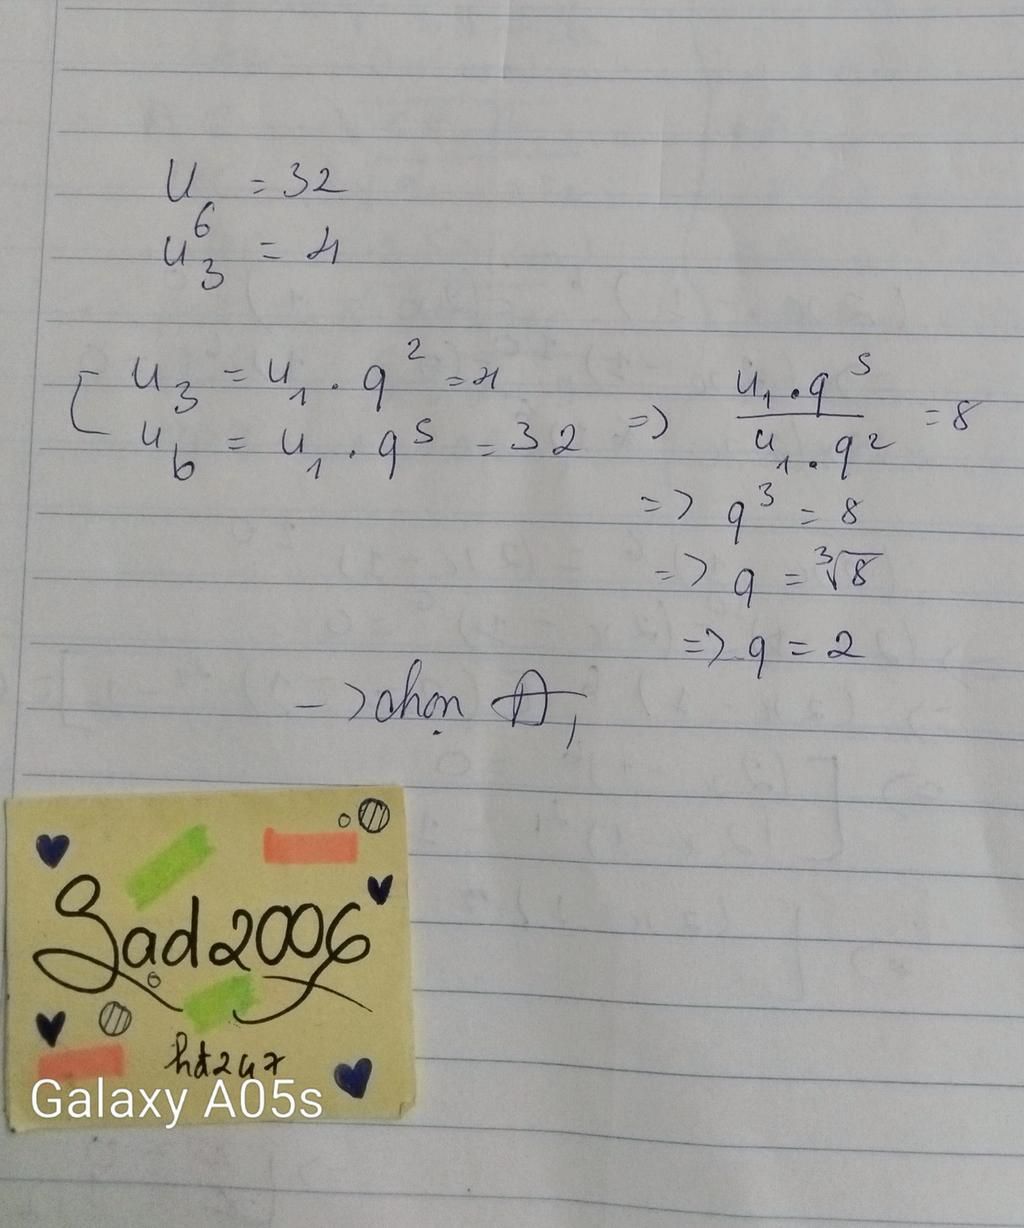 u₆ = 32
u₃ = 4
u₃ = u₁ . q² = 4
u₆ = u₁ . q⁵ = 32 => u₁ . q⁵ / u₁ . q² = 8
=> q³ = 8
=> q = ³√8
=> q = 2
-> chọn A,
Sad2006
hd247
Galaxy A05s